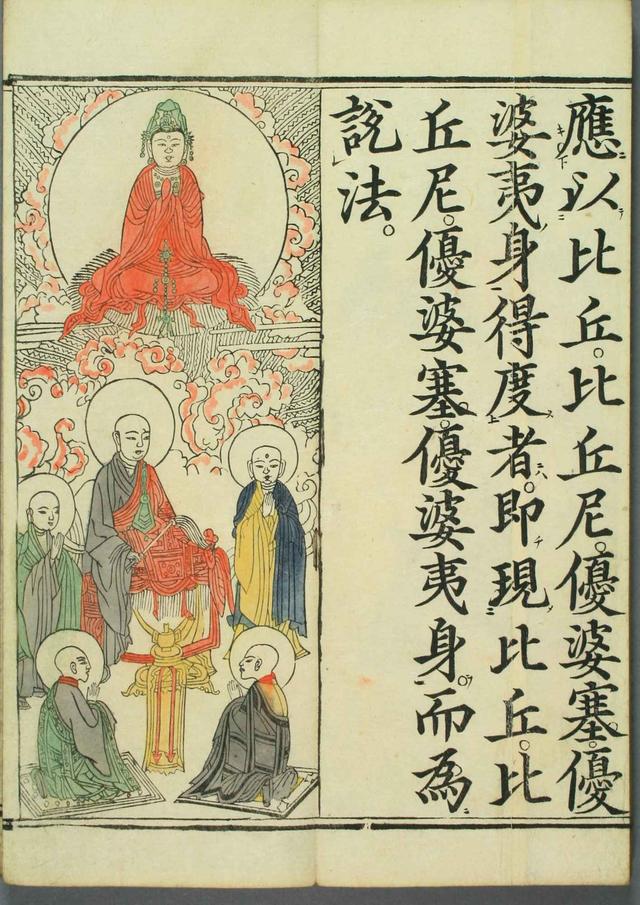 應以比丘。比丘尼。優婆塞。優
婆夷身得度者。即現比丘。比
丘尼。優婆塞。優婆夷身。而為
說法。